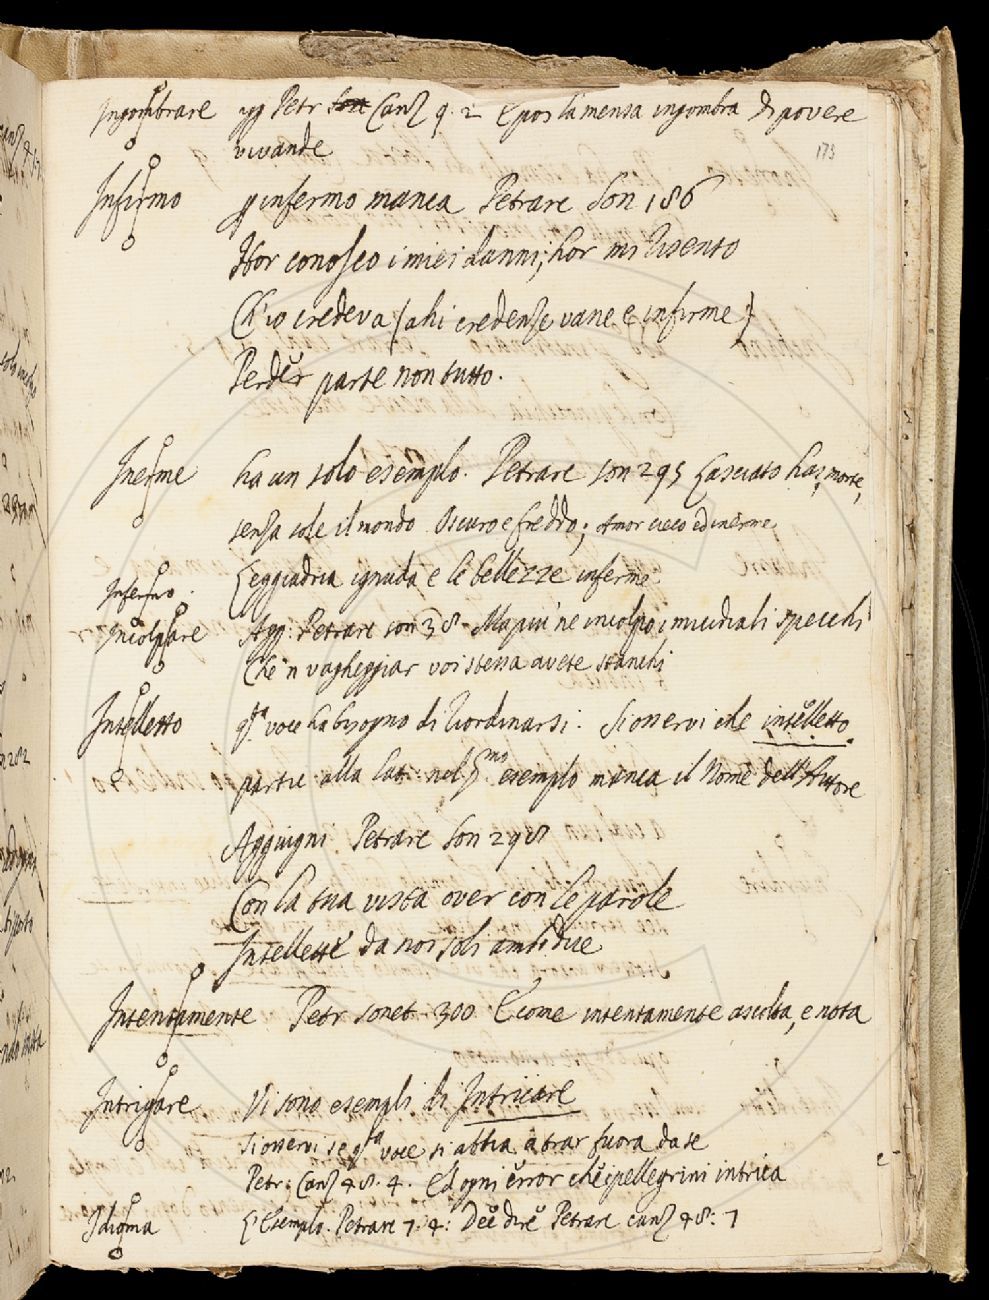 Ingombrare agg Petr Son Canz 9. 2 E pos la mensa ingombra Di povere
vivande
173
Infirmo p infermo manca Petrarc Son 186
Hor conosco i miei danni; hor mi risento
Ch'io credeva (ahi credenze vane e infirme)
Perder parte non tutto.
Inerme ha un solo esempio. Petrarc son 295 Lasciato hai morte,
senza sole il mondo Oscuro e freddo; Amor cieco ed inerme
Leggiadria ignuda e le bellezze inferme
Infermo.
Incolpare Agg: Petrarc son 38 Ma piu ne incolpo i micidiali specchi
Che 'n vagheggiar voi stessa avete stanchi
Intelletto qta voce ha bisogno di riordinarsi. Si osservi che intelletto
partic: alla lat: nel pmo esempio manca il Nome dell'Autore
Aggiugni Petrarc Son 298
Con la sua vista over con le parole
Intellette da noi soli ambidue
Intentamente Petr sonet. 300 E come intentamente ascolta, e nota
Intrigare Vi sono esempli di Intricare
Si osservi se qta voce si abbia a trar fuora da se
Petr: Canz 48. 4. Ed ogni error che i pellegrini intrica
Idioma L'Esempio. Petrarc 7. 4: Dee dire Petrarc canz 48: 7